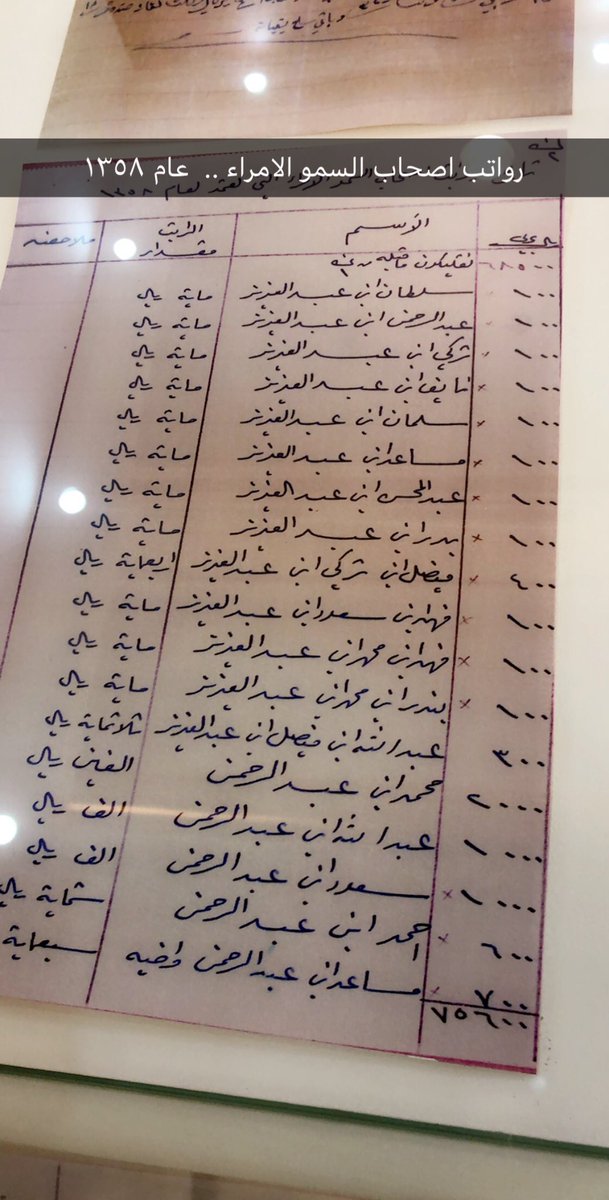 وباقي
رواتب اصحاب السمو الامراء .. عام ١٣٥٨
لعام ١٣٥٨
ريال عربي الأسم مقدار الراتب ملاحظه
٦٨٥٠٠ نقليكون ماقبله
١٠٠ سلطان ابن عبد العزيز ماية ريال
١٠٠ عبد الرحمن ابن عبد العزيز ماية ريال
١٠٠ تركي ابن عبد العزيز ماية ريال
١٠٠ نايف ابن عبد العزيز ماية ريال
١٠٠ سلمان ابن عبد العزيز ماية ريال
١٠٠ مساعد ابن عبد العزيز ماية ريال
١٠٠ عبد المحسن ابن عبد العزيز ماية ريال
١٠٠ بندر ابن عبد العزيز ماية ريال
٤٠٠ فيصل ابن تركي ابن عبد العزيز اربعماية ريال
١٠٠ فهد ابن سعود ابن عبد العزيز ماية ريال
١٠٠ فهد ابن محمد ابن عبد العزيز ماية ريال
١٠٠ بندر ابن محمد ابن عبد العزيز ماية ريال
٣٠٠ عبد الله ابن فيصل ابن عبد العزيز ثلاثماية ريال
٢٠٠٠ محمد ابن عبد الرحمن الفين ريال
١٠٠٠ عبد الله ابن عبد الرحمن الف ريال
١٠٠٠ سعود ابن عبد الرحمن الف ريال
٦٠٠ احمد ابن عبد الرحمن ستماية ريال
٧٠٠ مساعد ابن عبد الرحمن واخيه سبعماية
٧٥٦٠٠